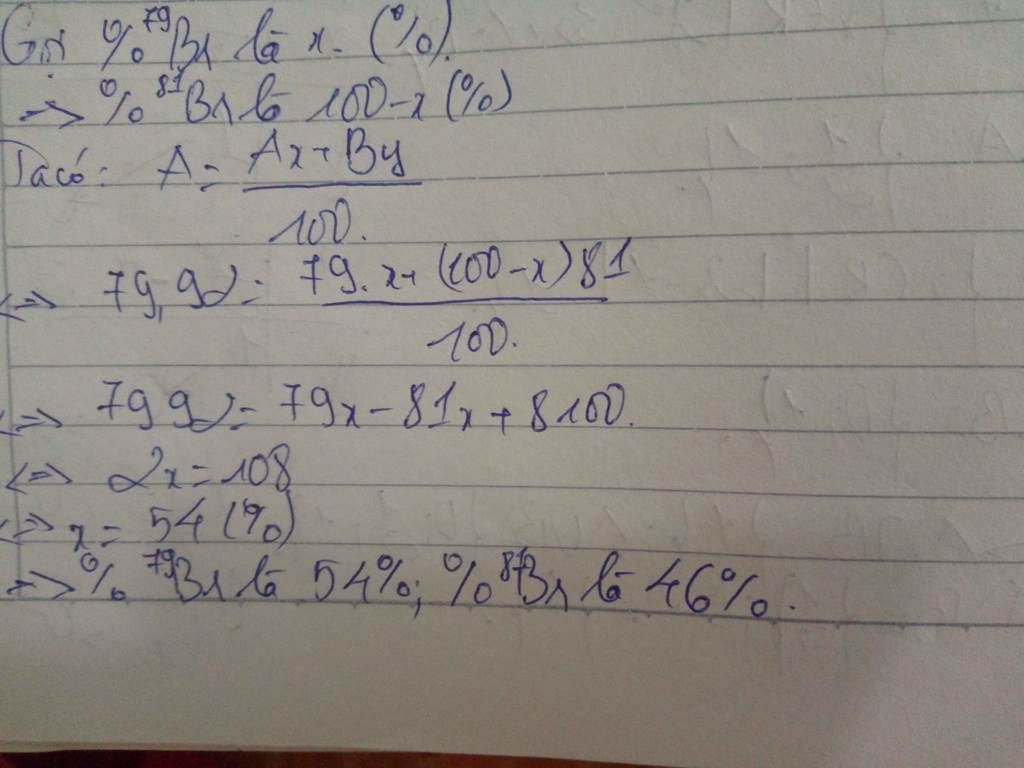 Gọi % ⁷⁹Br là x (%).
=> % ⁸¹Br là 100-x (%)
Ta có: A = Ax + By / 100.
<=> 79,92 = 79.x + (100-x)81 / 100.
<=> 7992 = 79x - 81x + 8100.
<=> 2x = 108
<=> x = 54 (%)
=> % ⁷⁹Br là 54%; % ⁸¹Br là 46%.